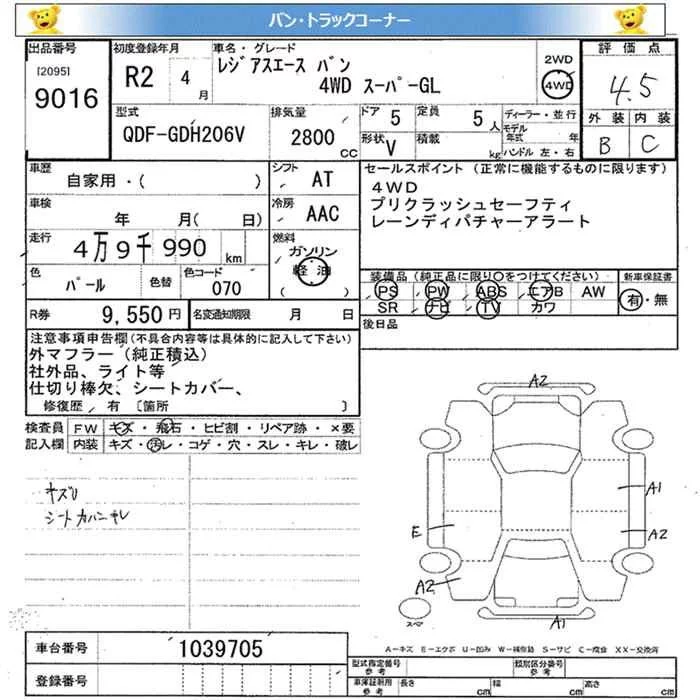 バン・トラックコーナー
出品番号
[2095]
9016
初度登録年月
R2 4月
車名・グレード
レジアスエース バン
4WD スーパーGL
2WD
4WD
評価点
4.5
外装 内装
B C
型式
QDF-GDH206V
排気量
2800 CC
ドア 5
定員 5人
形状 V
積載 kg
ディーラー・並行
モデル年式 年
ハンドル 左・右
車歴
自家用・( )
シフト AT
車検
年 月( 日)
冷房 AAC
走行
4万9千990 km
燃料
ガソリン
軽油
( )
色 パール
色替
色コード 070
R券 9,550円
名変通知期限 月 日
セールスポイント (正常に機能するものに限ります)
4WD
プリクラッシュセーフティ
レーンディパチャーアラート
装備品(純正品に限り○をつけてください)
PS PW ABS エアB AW
SR ナビ TV カワ
新車保証書
有・無
後日品
注意事項申告欄(不具合内容等は具体的に記入して下さい)
外マフラー(純正積込)
社外品、ライト等
仕切り棒欠、シートカバー、
修復歴 有 [箇所 ]
検査員 FW キズ・飛石・ヒビ割・リペア跡・×要
記入欄 内装 キズ・汚レ・コゲ・穴・スレ・キレ・破レ
キズU
シートカバーキレ
A2
A1
E
A2
A2
A1
スマ
A-キズ E-エクボ U-凹み W-補修跡 S-サビ C-腐食 XX-交換済
車台番号 1039705
登録番号
型式指定番号
参考
類別区分番号
参考
車庫証明用
参考
長さ cm 幅 cm 高さ cm